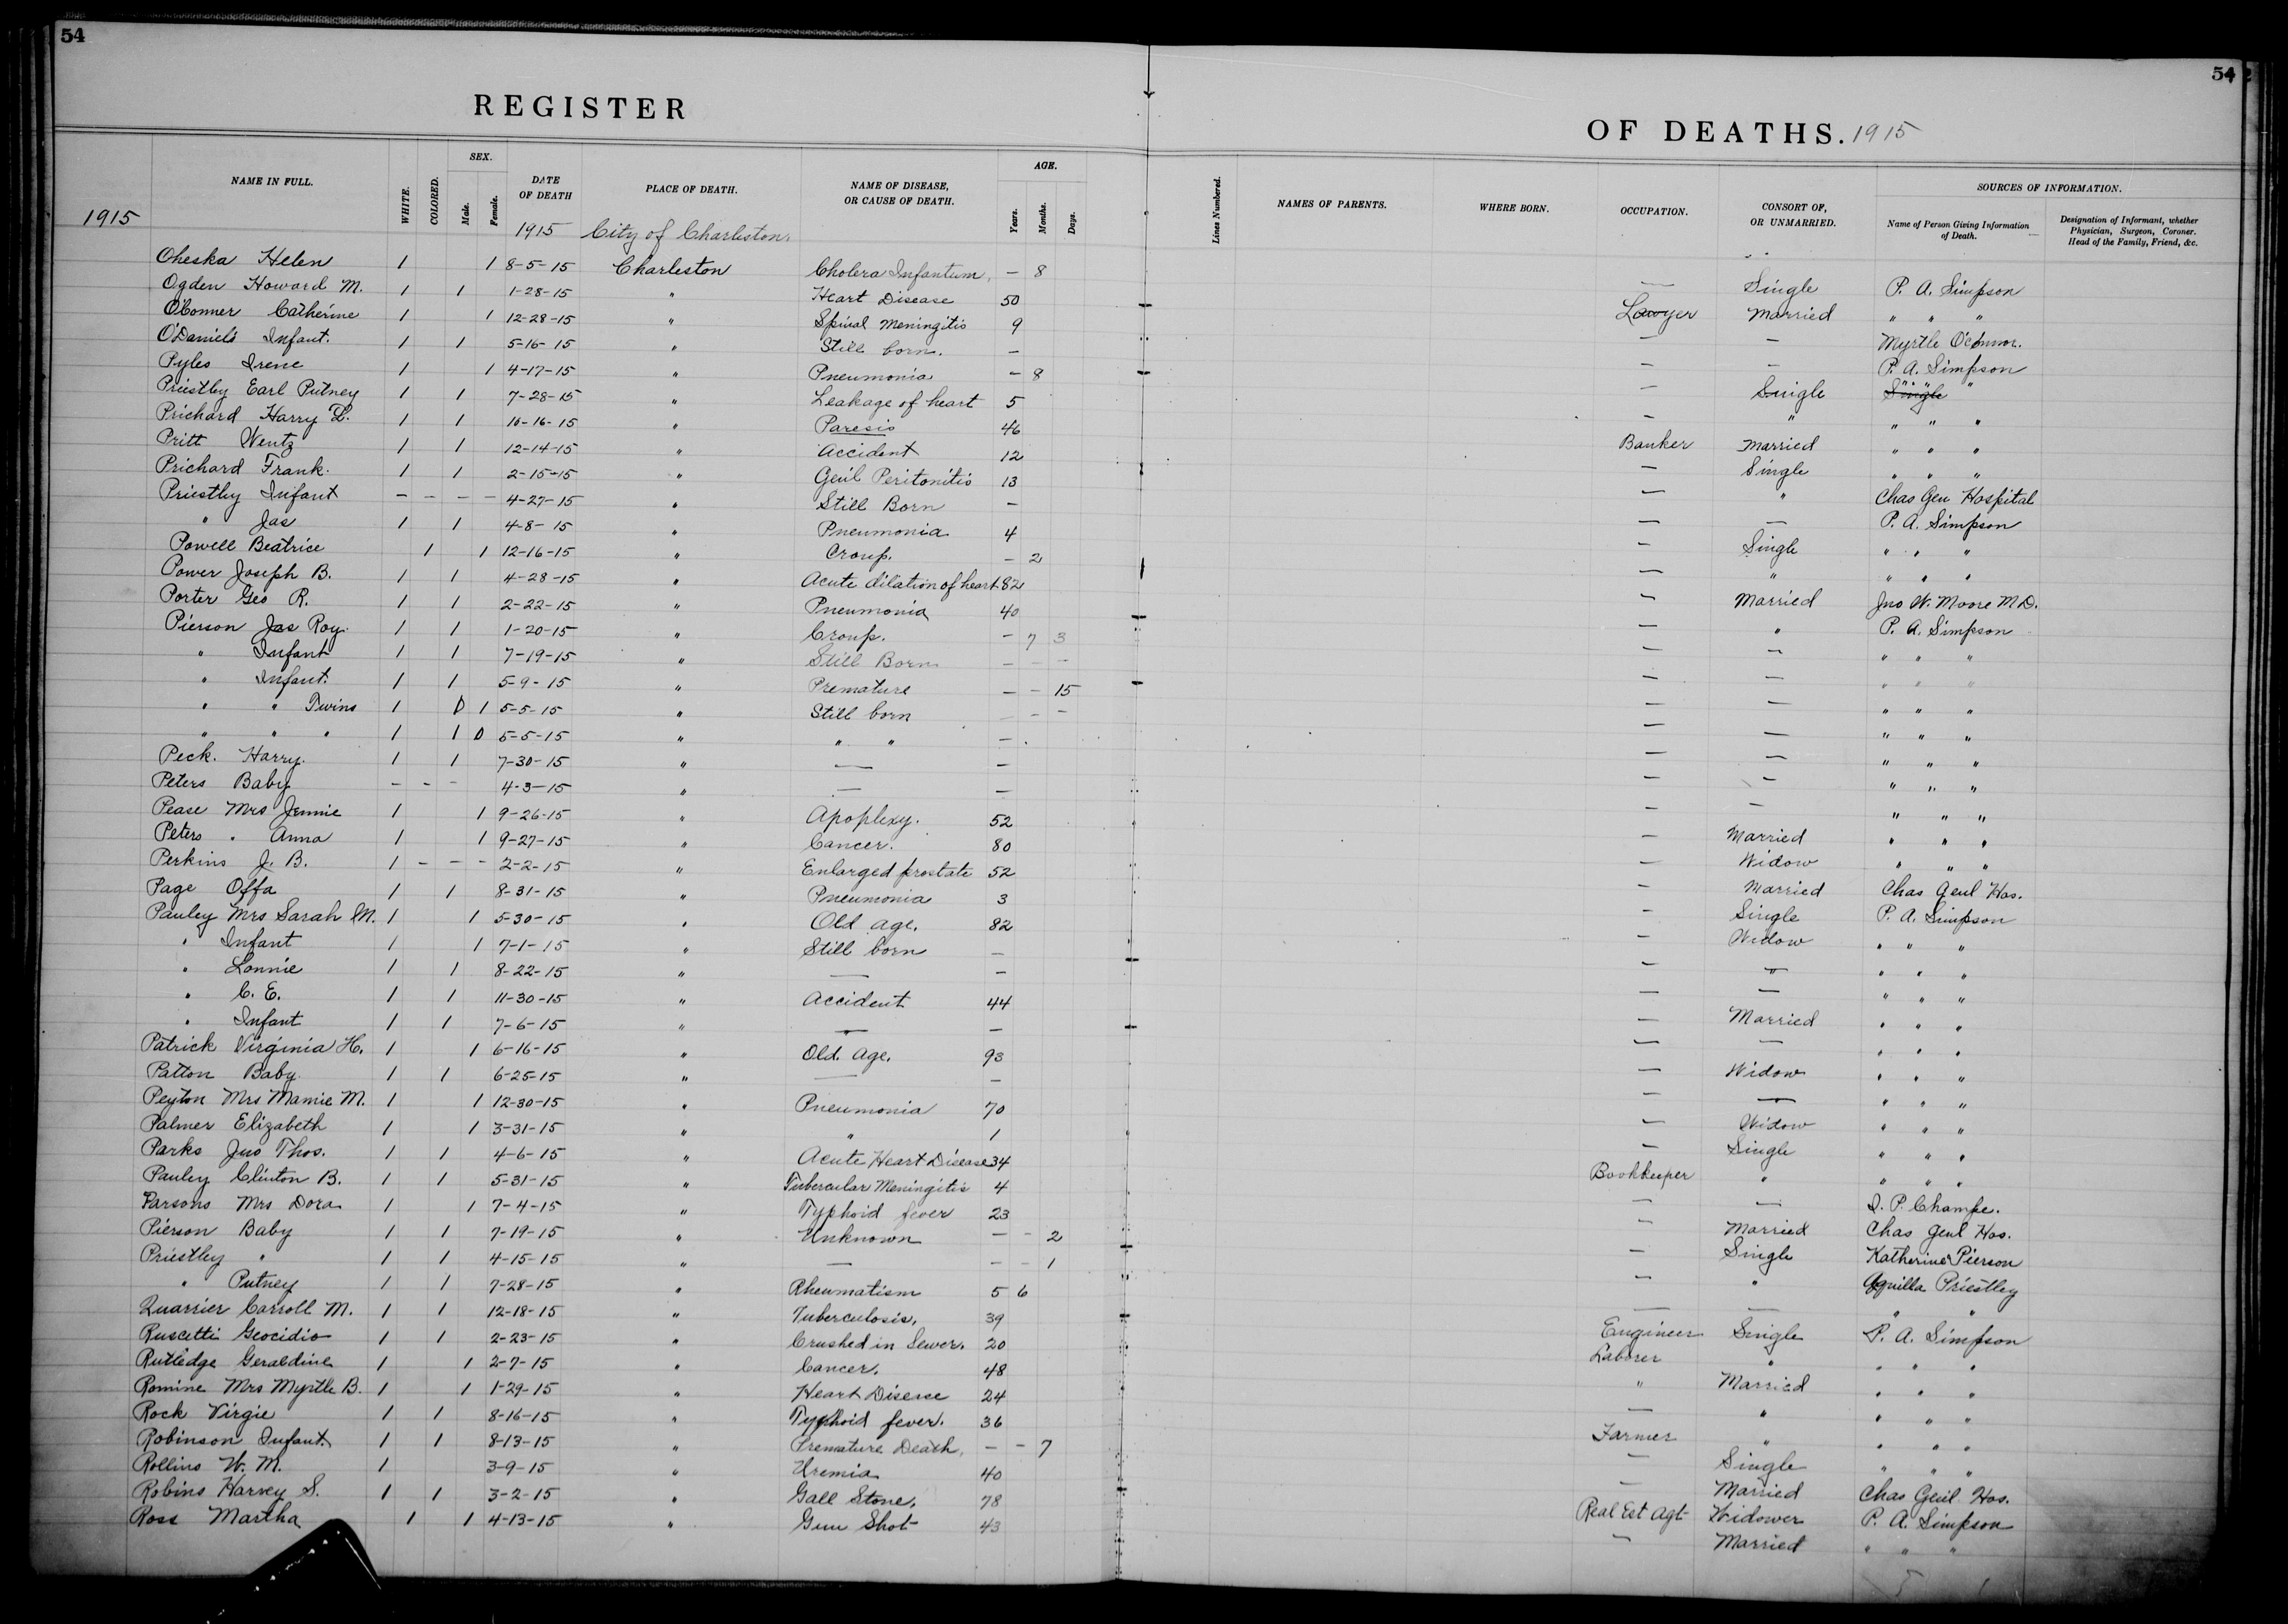 54
REGISTER
NAME IN FULL. WHITE. COLORED. SEX. Male. Female. DATE OF DEATH PLACE OF DEATH. NAME OF DISEASE, OR CAUSE OF DEATH. AGE. Years. Months. Days.
1915 1915 City of Charleston.
Oheska Helen 1 1 8-5-15 Charleston Cholera Infantum, — 8
Ogden Howard M. 1 1 1-28-15 " Heart Disease 50
O'Conner Catherine 1 1 12-28-15 " Spinal Meningitis 9
O'Daniels Infant. 1 1 5-16-15 " Still born. —
Pyles Irene 1 1 4-17-15 " Pneumonia — 8
Priestley Earl Putney 1 1 7-28-15 " Leakage of heart 5
Prichard Harry L. 1 1 10-16-15 " Paresis 46
Pritt Wentz 1 1 12-14-15 " Accident 12
Prichard Frank. 1 1 2-15-15 " Genl Peritonitis 13
Priestley Infant — — — — 4-27-15 " Still Born —
" Jas 1 1 4-8-15 " Pneumonia 4
Powell Beatrice 1 1 12-16-15 " Croup. — 2
Power Joseph B. 1 1 4-28-15 " Acute dilation of heart 82
Porter Geo R. 1 1 2-22-15 " Pneumonia 40
Pierson Jas Roy. 1 1 1-20-15 " Croup. — 7 3
" Infant 1 1 7-19-15 " Still Born — — —
" Infant. 1 1 5-9-15 " Premature — — 15
" " Twins 1 0 1 5-5-15 " Still born — — —
" " " 1 1 0 5-5-15 " " " —
Peck. Harry. 1 1 7-30-15 " — —
Peters Baby — — — 4-3-15 " — —
Pease Mrs Jennie 1 1 9-26-15 " Apoplexy. 52
Peters " Anna 1 1 9-27-15 " Cancer. 80
Perkins J. B. 1 — — — 2-2-15 " Enlarged prostate 52
Page Offa 1 1 8-31-15 " Pneumonia 3
Pauley Mrs Sarah M. 1 1 5-30-15 " Old age. 82
" Infant 1 1 7-1-15 " Still born —
" Lonnie 1 1 8-22-15 " — —
" C. E. 1 1 11-30-15 " Accident 44
" Infant 1 1 7-6-15 " — —
Patrick Virginia H. 1 1 6-16-15 " Old. age. 93
Patton Baby 1 1 6-25-15 " — —
Peyton Mrs Mamie M. 1 1 12-30-15 " Pneumonia 70
Palmer Elizabeth 1 1 3-31-15 " " 1
Parks Jno Thos. 1 1 4-6-15 " Acute Heart Disease 34
Pauley Clinton B. 1 1 5-31-15 " Tubercular Meningitis 4
Parsons Mrs Dora 1 1 7-4-15 " Typhoid fever 23
Pierson Baby 1 1 7-19-15 " Unknown — — 2
Priestley " 1 1 4-15-15 " — — — 1
" Putney 1 1 7-28-15 " Rheumatism 5 6
Quarrier Carroll M. 1 1 12-18-15 " Tuberculosis. 39
Ruscetti Geocidio 1 1 2-23-15 " Crushed in Sewer. 20
Rutledge Geraldine 1 1 2-7-15 " Cancer. 48
Romine Mrs Myrtle B. 1 1 1-29-15 " Heart Disease 24
Rock Virgie 1 1 8-16-15 " Typhoid fever. 36
Robinson Infant. 1 1 8-13-15 " Premature Death, — — 7
Rollins W. M. 1 3-9-15 " Uremia 40
Robins Harvey S. 1 1 3-2-15 " Gall Stone. 78
Ross Martha 1 1 4-13-15 " Gun Shot 43
54
OF DEATHS. 1915
Lines Numbered. NAMES OF PARENTS. WHERE BORN. OCCUPATION. CONSORT OF, OR UNMARRIED. SOURCES OF INFORMATION. Name of Person Giving Information of Death. Designation of Informant, whether Physician, Surgeon, Coroner. Head of the Family, Friend, &c.
— Single P. A. Simpson
Lawyer Married " " "
— — Myrtle O'Connor.
— — P. A. Simpson
— Single Single " " "
— " " " "
Banker Married " " "
— Single " " "
— " Chas Gen Hospital
— — P. A. Simpson
— Single " " "
— " " " "
— Married Jno W. Moore M.D.
— " P. A. Simpson
— — " " "
— — " " "
— — " " "
— — " " "
— — " " "
— — " " "
— — " " "
— Married " " "
— Widow " " "
— Married Chas Genl Hos.
— Single P. A. Simpson
— Widow " " "
— " " " "
— — " " "
— Married " " "
— — " " "
— Widow " " "
— — " " "
— Widow " " "
— Single " " "
Bookkeeper " " " "
— — I. P. Champe.
— Married Chas Genl Hos.
— Single Katherine Pierson
— " Aquilla Priestley
— — " "
Engineer Single P. A. Simpson
Laborer " " " "
" Married " " "
— " " " "
Farmer " " " "
— Single " " "
— Married Chas Genl Hos.
Real Est Agt Widower P. A. Simpson
— Married " " "